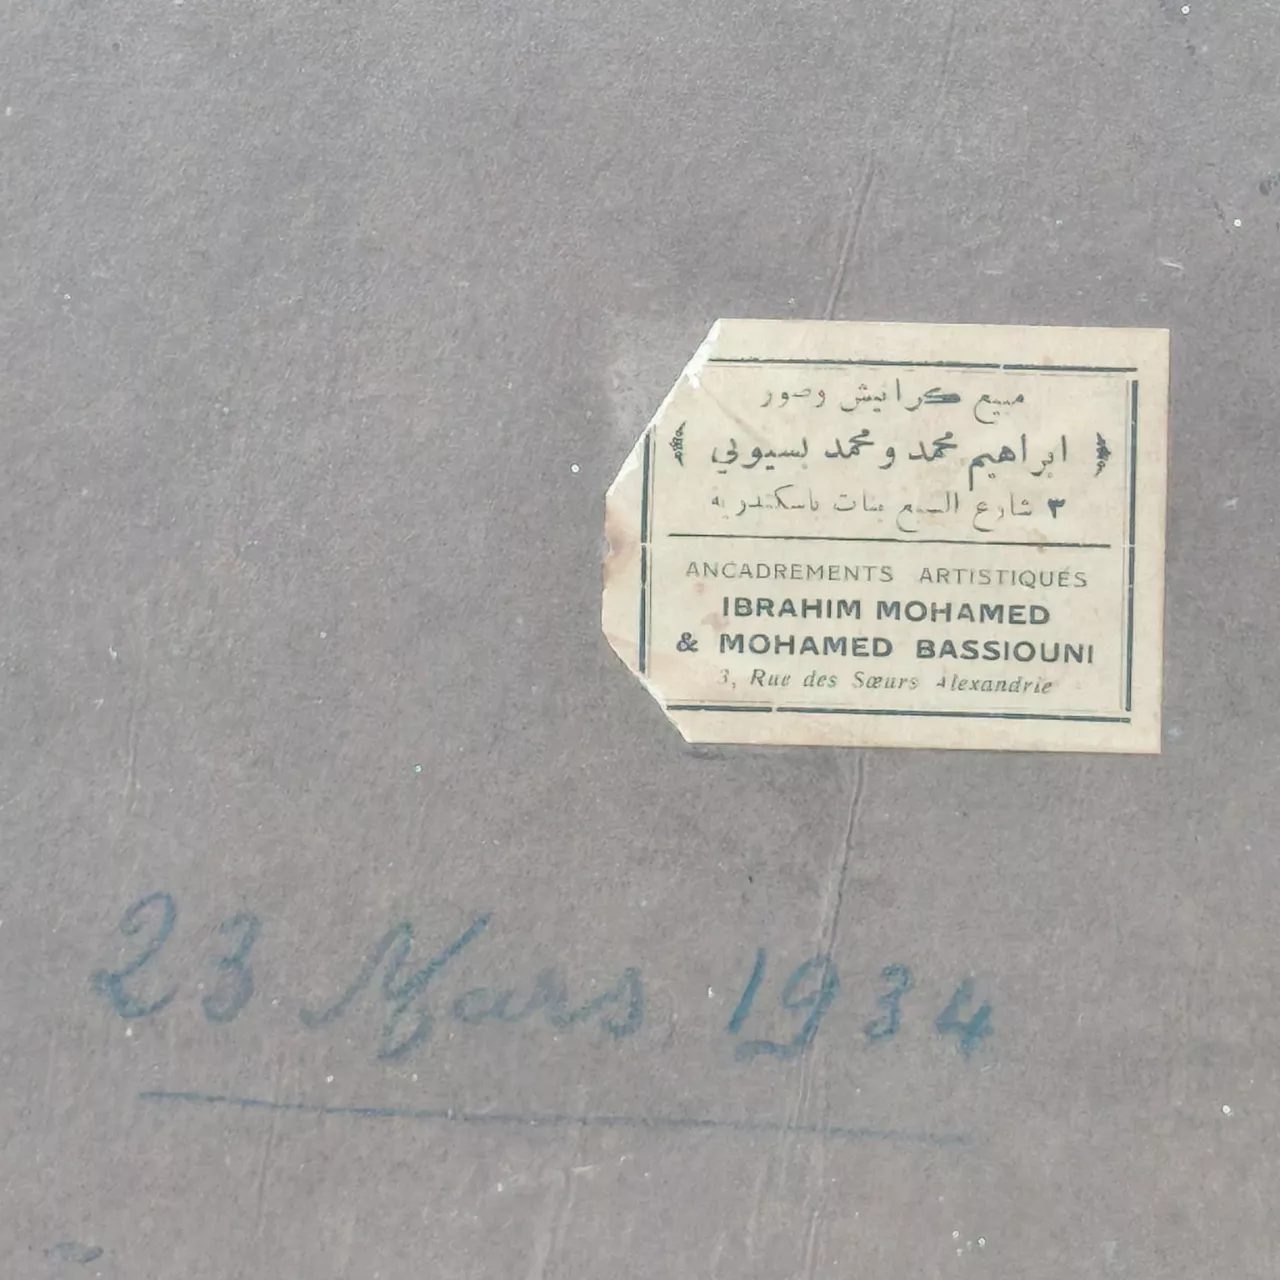 مبيع كرانيش وصور
ابراهيم محمد و محمد بسيوني
٣ شارع السبع بنات باسكندريه
ANCADREMENTS ARTISTIQUES
IBRAHIM MOHAMED
& MOHAMED BASSIOUNI
3, Rue des Sœurs Alexandrie
23 Mars 1934